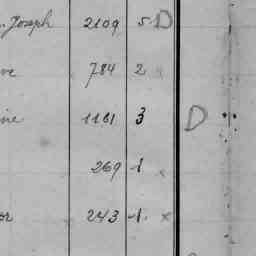 . Joseph 2109 5 D
ve 784 2 x
ine 1161 3 D
269 1 x
or 243 1. x